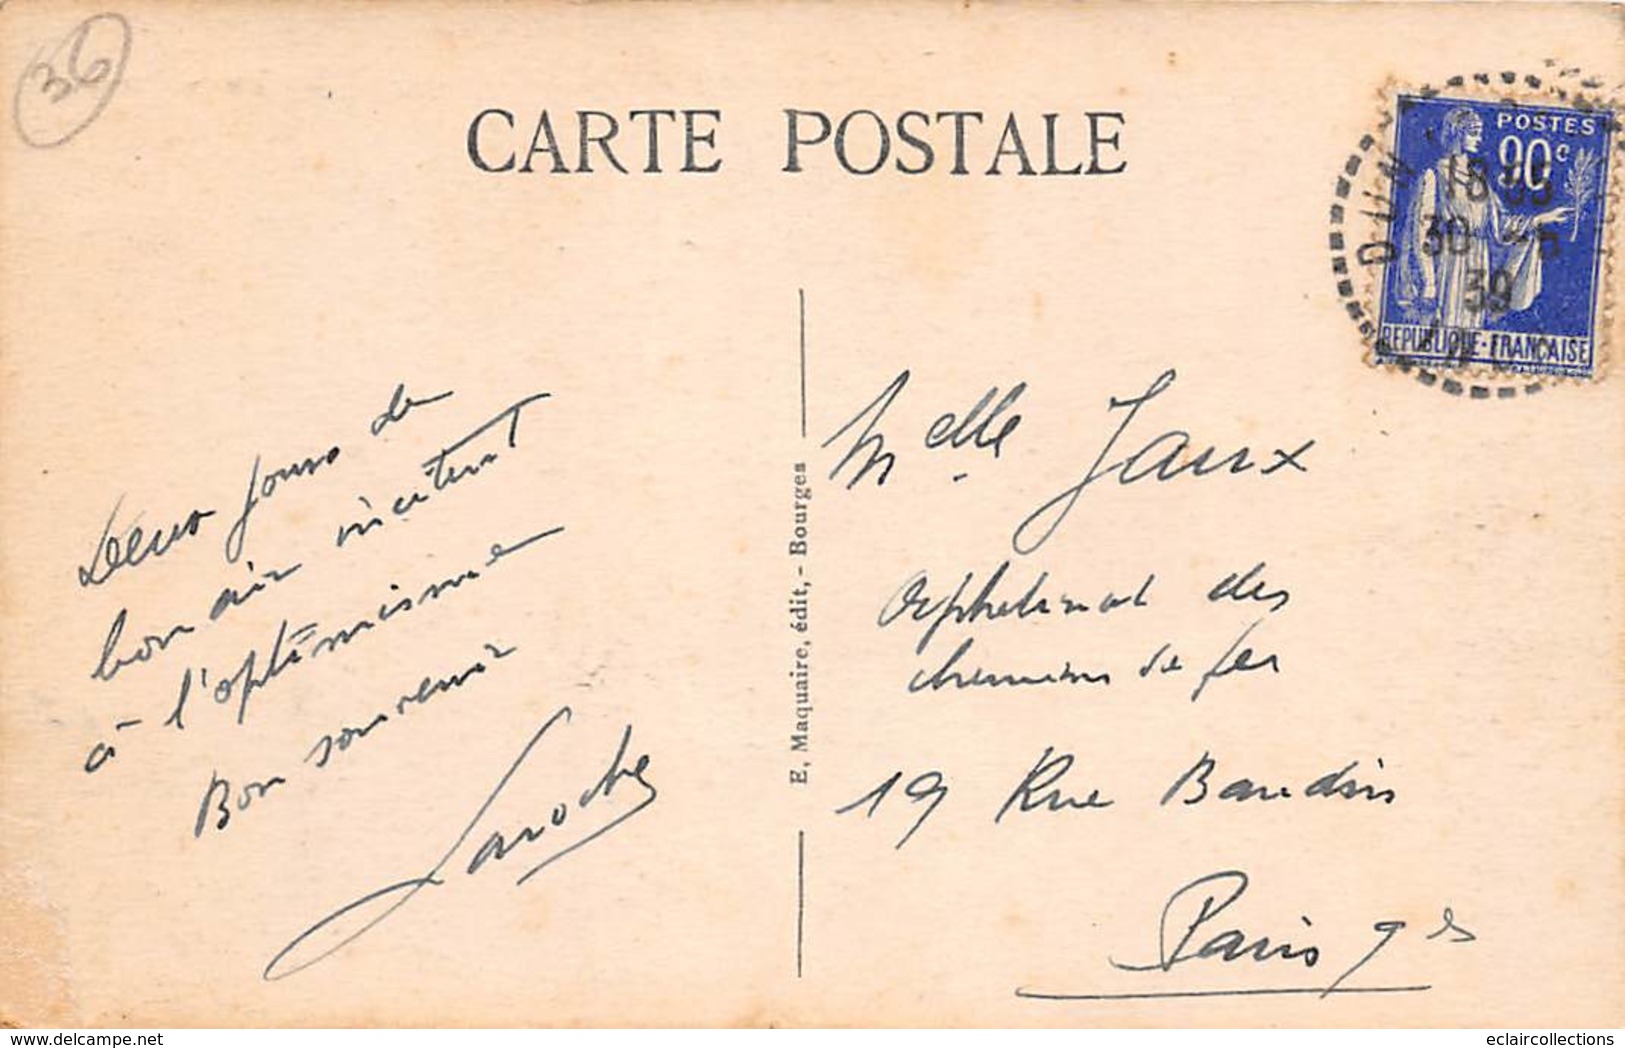 36
CARTE POSTALE
POSTES
90c
DUN
18 35
30 - 5
39
REPUBLIQUE-FRANÇAISE
Deux jours de
bon air incitent
à l'optimisme
Bon souvenir
Laroche
E. Maquaire, édit, - Bourges
Melle Jaux
Orphelinat des
chemins de fer
19 Rue Baudin
Paris 9es
eclaircollections